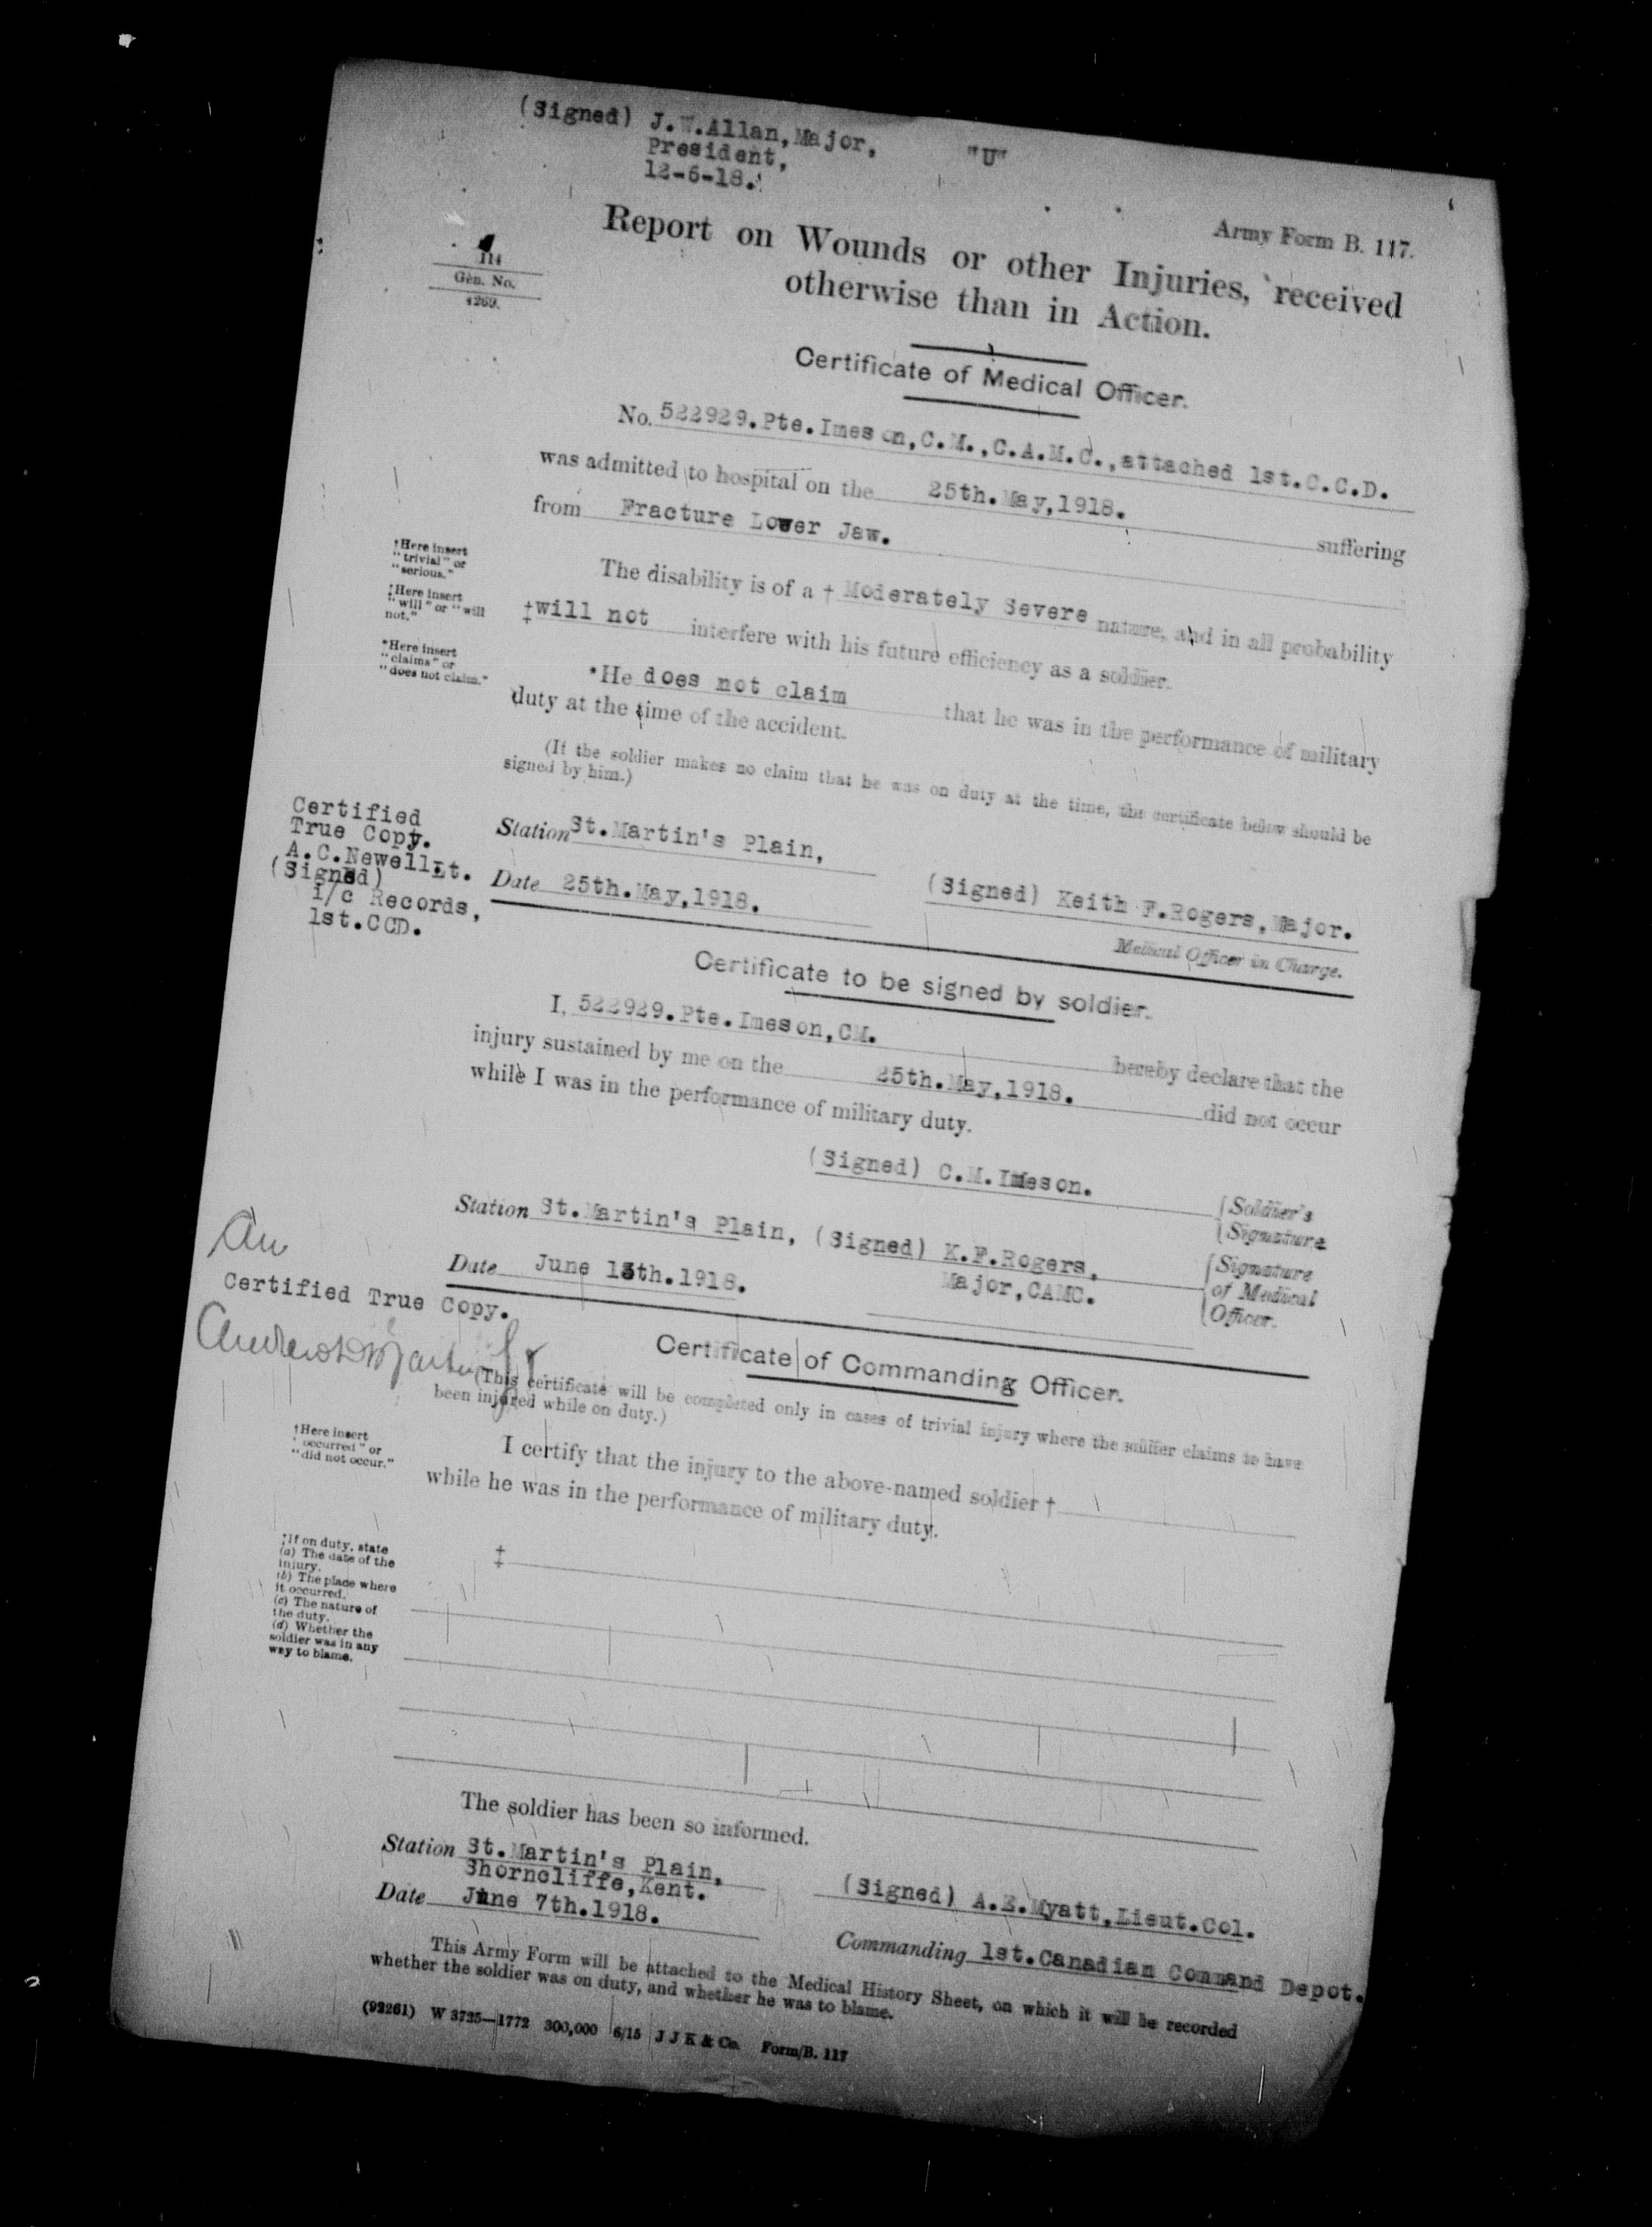 (Signed) J.W.Allan,Major,
President,
12-6-18.
"U"
Army Form B. 117.
114
Gen. No.
4269.
Report on Wounds or other Injuries, received
otherwise than in Action.
Certificate of Medical Officer.
No. 522929.Pte.Imeson,C.M.,C.A.M.C.,attached 1st.C.C.D.
was admitted to hospital on the 25th.May,1918. suffering
from Fracture Lower Jaw.
†Here insert
"trivial" or
"serious."
The disability is of a † Moderately Severe nature, and in all probability
‡Here insert
"will" or "will
not."
‡will not interfere with his future efficiency as a soldier.
*Here insert
"claims" or
"does not claim."
*He does not claim that he was in the performance of military
duty at the time of the accident.
(If the soldier makes no claim that he was on duty at the time, the certificate below should be
signed by him.)
Certified
True Copy.
A.C.Newell,Lt.
(Signed)
i/c Records,
1st.CCD.
Station St.Martin's Plain,
Date 25th.May,1918.
(Signed) Keith F.Rogers,Major.
Medical Officer in Charge.
Certificate to be signed by soldier.
I, 522929.Pte.Imeson,CM. hereby declare that the
injury sustained by me on the 25th.May,1918. did not occur
while I was in the performance of military duty.
(Signed) C.M.Imeson.
Soldier's
Signature
Station St.Martin's Plain, (Signed) K.F.Rogers,
Major,CAMC.
Signature
of Medical
Officer.
Date June 13th.1918.
Certified True Copy.
Certificate of Commanding Officer.
(This certificate will be completed only in cases of trivial injury where the soldier claims to have
been injured while on duty.)
†Here insert
"occurred" or
"did not occur."
I certify that the injury to the above-named soldier †
while he was in the performance of military duty.
‡If on duty, state
(a) The date of the
injury.
(b) The place where
it occurred.
(c) The nature of
the duty.
(d) Whether the
soldier was in any
way to blame.
‡
The soldier has been so informed.
Station St.Martin's Plain,
Shorncliffe,Kent.
Date June 7th.1918.
(Signed) A.E.Myatt,Lieut.Col.
Commanding 1st.Canadian Command Depot.
This Army Form will be attached to the Medical History Sheet, on which it will be recorded
whether the soldier was on duty, and whether he was to blame.
(92261) W 3725—1772 300,000 6/15 J J K & Co. Form/B. 117